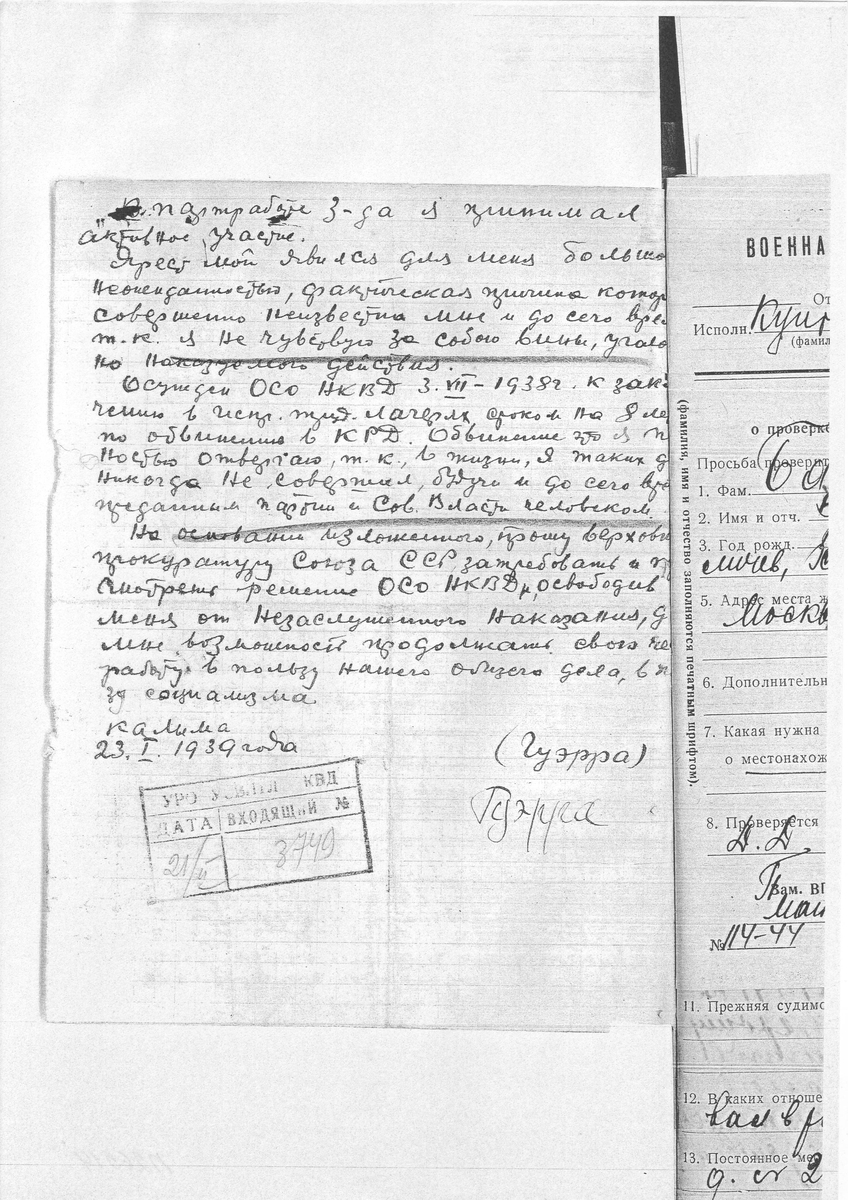 В партработе 3-да я принимал
активное участие.
Арест мой явился для меня большо
неожиданностью, фактическая причина котор
совершенно неизвестна мне и до сего вре
т.к. я не чувствую за собою вины, уголо
но наказуемого действия.
Осужден ОСО НКВД 3.VII–1938г. к закл
чению в испр. труд. лагерях сроком на 8 ле
по обвинению в КРД. Обвинение это я п
ностью отвергаю, т.к., в жизни, я таких д
никогда не совершил, будучи и до сего вре
преданным партии и Сов. Власти человеком.
На основании изложенного, прошу верховн
прокуратуру Союза ССР, затребовать и п
смотреть решение ОСО НКВД и, освободив
меня от незаслуженного наказания, д
мне возможность продолжать свою че
работу в пользу нашего общего дела, в п
зу социализма.
Калыма
23.I.1939 года
(Гуэрра)
Гуэрра
УРО УСВИТЛ КВД
ДАТА ВХОДЯЩИЙ №
21/II 3740
ВОЕННА
От
Исполн.
(фамил
(фамилия, имя и отчество заполняются печатным шрифтом).
о проверке
Просьба проверит
1. Фам.
2. Имя и отч.
3. Год рожд.
5. Адрес места ж
Москв
6. Дополнительн
7. Какая нужна
о местонахож
8. Проверяется
Д. Д.
Зам. ВП
№ 114-44
11. Прежняя судимо
12. В каких отноше
13. Постоянное ме